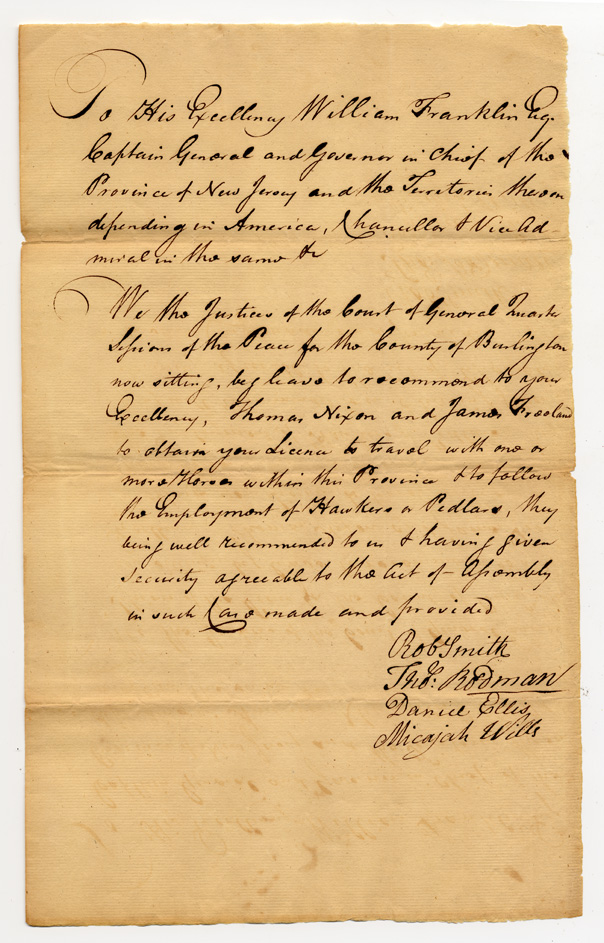 To His Excellency William Franklin Esq.
Captain General and Governor in Chief of the
Province of New Jersey and the Territories thereon
depending in America, Chancellor & Vice Ad-
miral in the same &c
We the Justices of the Court of General Quarter
Sessions of the Peace for the County of Burlington
now sitting, beg leave to recommend to your
Excellency, Thomas Nixon and James Freeland
to obtain your Licence to travel with one or
more Horses within this Province & to follow
the Employment of Hawkers or Pedlars, they
being well recommended to us & having given
security agreeable to the Act of Assembly
in such Case made and provided
Rob Smith
Tho.s Rodman
Daniel Ellis
Micajah Wills